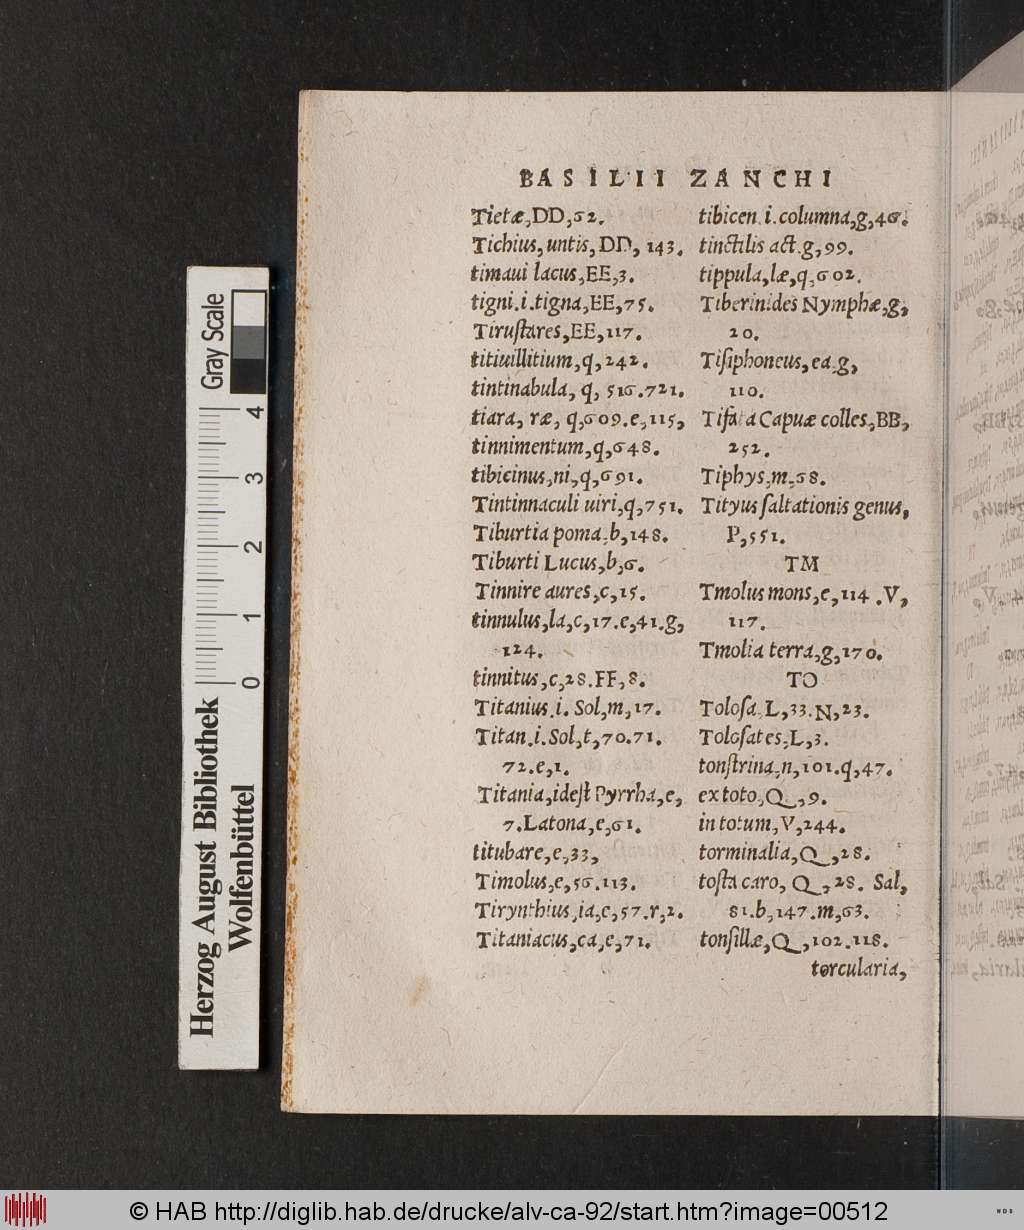 BASILII ZANCHI
Tietæ, DD, 62.
Tichius, untis, DD, 143.
timaui lacus, EE, 3.
tigni.i.tigna, EE, 75.
Tirustares, EE, 117.
titiuillitium, q, 242.
tintinabula, q, 516.721.
tiara, ræ, q, 609.e, 115,
tinnimentum, q, 648.
tibicinus, ni, q, 691.
Tintinnaculi uiri, q, 751.
Tiburtia poma, b, 148.
Tiburti Lucus, b, 6.
Tinnire aures, c, 15.
tinnulus, la, c, 17.e, 41.g,
124.
tinnitus, c, 28.FF, 8.
Titanius.i. Sol, m, 17.
Titan.i.Sol, t, 70.71.
72.e, 1.
Titania, idest Pyrrha, e,
7.Latona, e, 61.
titubare, e, 33,
Timolus, e, 56.113.
Tirynthius, ia, e, 57.r, 2.
Titaniacus, ca, e, 71.
tibicen.i.columna, g, 46.
tinctilis act.g, 99.
tippula, læ, q, 602.
Tiberinides Nymphæ, g,
20.
Tisiphoneus, ea.g,
110.
Tifata Capuæ colles, BB,
252.
Tiphys, m, 68.
Tityus saltationis genus,
P, 551.
TM
Tmolus mons, e, 114.V,
117.
Tmolia terra, g, 170.
TO
Tolosa, L, 33.N, 23.
Tolosates, L, 3.
tonstrina, n, 101.q, 47.
ex toto, Q, 9.
in totum, V, 244.
torminalia, Q, 28.
tosta caro, Q, 28. Sal,
81.b, 147.m, 63.
tonsillæ, Q, 102.118.
torcularia,
Gray Scale
4
3
2
1
0
Herzog August Bibliothek
Wolfenbüttel
© HAB http://diglib.hab.de/drucke/alv-ca-92/start.htm?image=00512